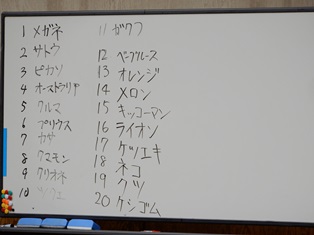 1 メガネ
2 サトウ
3 ピカソ
4 オーストラリヤ
5 クルマ
6 プリウス
7 カサ
8 クマモン
9 クリオネ
10
11 ガクフ
12 ベーブルース
13 オレンジ
14 メロン
15 キッコーマン
16 ライオン
17 ケツエキ
18 ネコ
19 クツ
20 ケシゴム